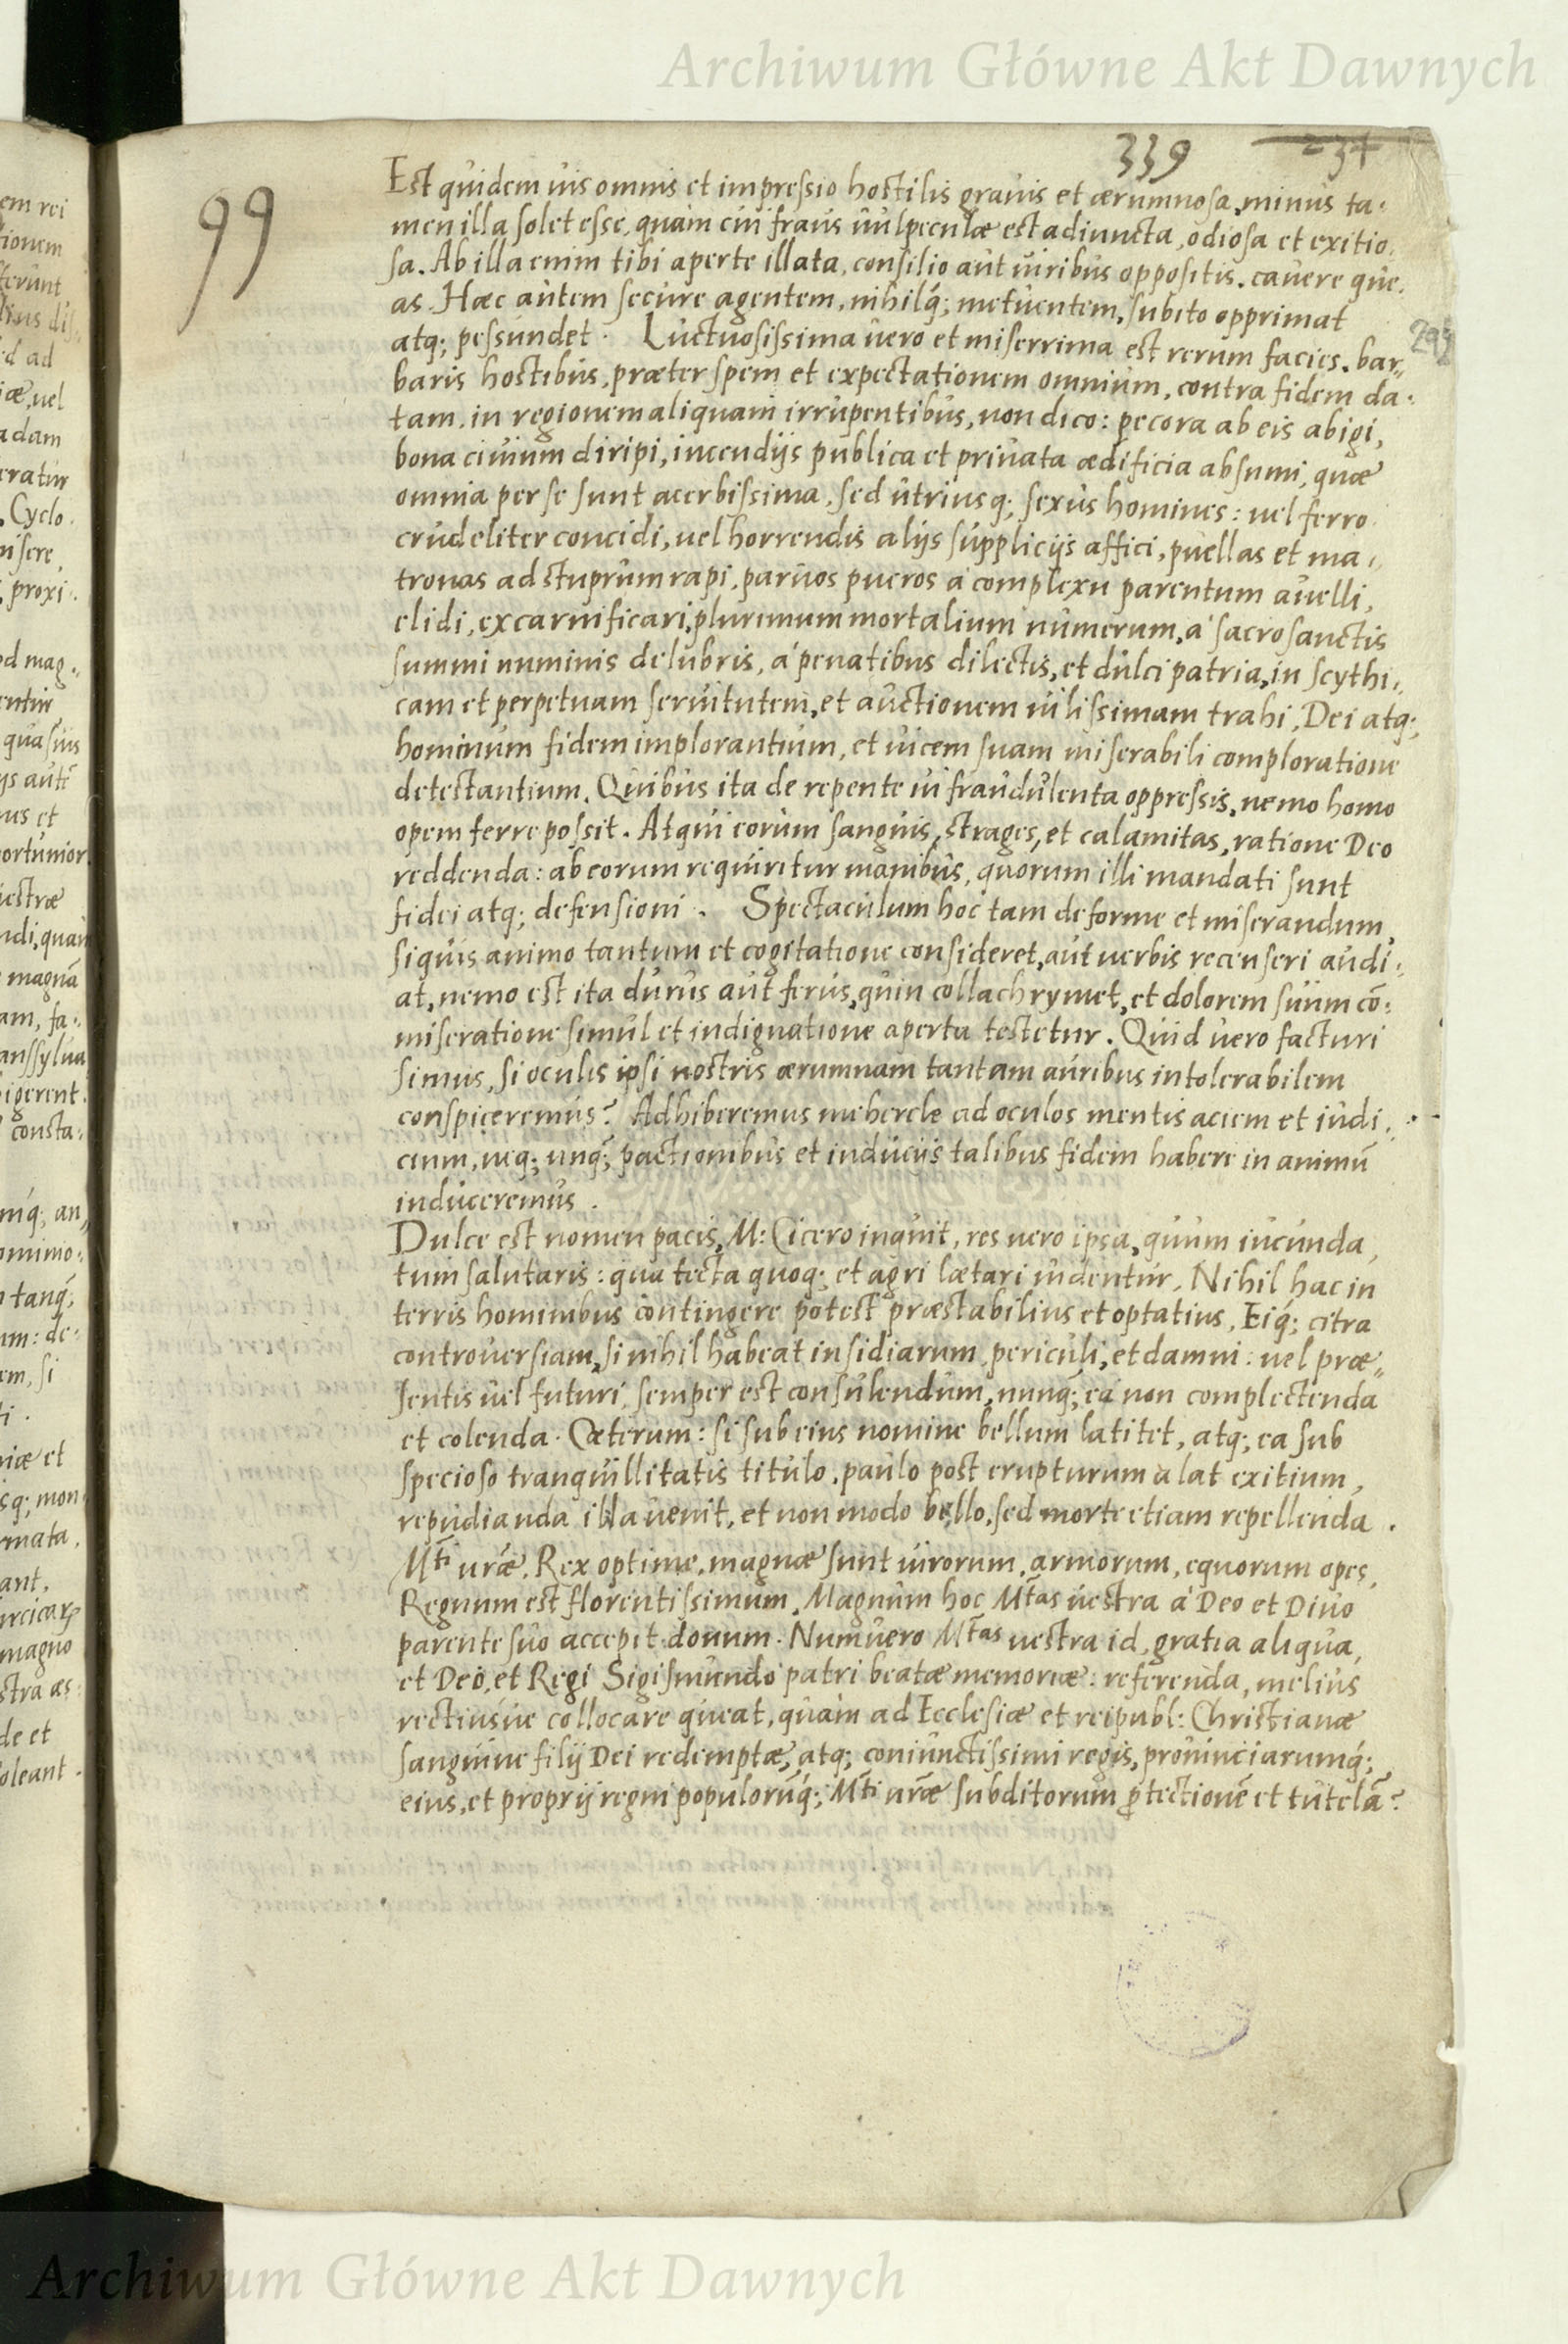 Archiwum Główne Akt Dawnych
339
234
99
Est quidem uis omnis et impressio hostilis grauis et ærumnosa, minus ta-
men illa solet esse, quàm cui fraus uulpeculæ est adiuncta, odiosa et exitio-
sa. Ab illa enim tibi aperte illata, consilio aut uiribus oppositis, cauere que-
as. Hæc autem secure agentem, nihilq́; metuentem, subito opprimat
atq; pessundet. Luctuosissima uero et miserrima est rerum facies, bar-
baris hostibus, præter spem et expectationem omnium, contra fidem da-
tam, in regionem aliquam irrupentibus, non dico: pecora ab eis abigi,
bona ciuium diripi, incendijs publica et priuata ædificia absumi, quæ
omnia per se sunt acerbissima, sed utriusq; sexus homines: uel ferro
crudeliter concidi, uel horrendis alijs supplicijs affici, puellas et ma-
tronas ad stuprum rapi, paruos pueros a complexu parentum auelli,
elidi, excarnificari, plurimum mortalium numerum, a' sacrosanctis
summi numinis delubris, a' penatibus dilectis, et dulci patria, in scythi-
cam et perpetuam seruitutem, et auctionem uilissimam trahi, Dei atq;
hominum fidem implorantium, et uicem suam miserabili comploratione
detestantium. Quibus ita de repente ui fraudulenta oppressis, nemo homo
opem ferre possit. Atqui eorum sanguis, strages, et calamitas, ratione Deo
reddenda: ab eorum requiritur manibus, quorum illi mandati sunt
fidei atq; defensioni. Spectaculum hoc tam deforme et miserandum,
siquis animo tantum et cogitatione consideret, aut uerbis recenseri audi-
at, nemo est ita durus aut ferus, quin collachrymet, et dolorem suum cō-
miseratione simul et indignatione aperta testetur. Quid uero facturi
simus, si oculis ipsi nostris ærumnam tantam auribus intolerabilem
conspiceremus? Adhiberemus mehercle ad oculos mentis aciem et iudi-
cium, neq; unq́; pactionibus et inducijs talibus fidem habere in animū
induceremus.
Dulce est nomen pacis, M: Cicero inquit, res uero ipsa, quum iucunda,
tum salutaris: qua tecta quoq; et agri lætari uidentur. Nihil hac in
terris hominibus contingere potest præstabilius et optatius. Eiq́; citra
controuersiam, si nihil habeat insidiarum, periculi, et damni: uel præ-
sentis uel futuri, semper est consulendum, nunq́; ea non complectenda
et colenda. Cæterum: si sub eius nomine bellum latitet, atq; ea sub
specioso tranquillitatis titulo, paulo post erupturum alat exitium,
repudianda illa uenit, et non modo bello, sed morte etiam repellenda.
Mti uræ, Rex optime, magnæ sunt uirorum, armorum, equorum opes,
Regnum est florentissimum. Magnum hoc Mtas uestra a' Deo et Diuo
parente suo accepit donum. Num uero Mtas uestra id, gratia aliqua,
et Deo, et Regi Sigismundo patri beatæ memoriæ: referenda, melius
rectiusúe collocare queat, quàm ad Ecclesiæ et reipubl: Christianæ
sanguine filij Dei redemptæ, atq; coniunctissimi regis, prouinciarumq́;
eius, et proprij regni populorūq́; Mti uræ subditorum ꝓtectionē et tutelā?
Archiwum Główne Akt Dawnych